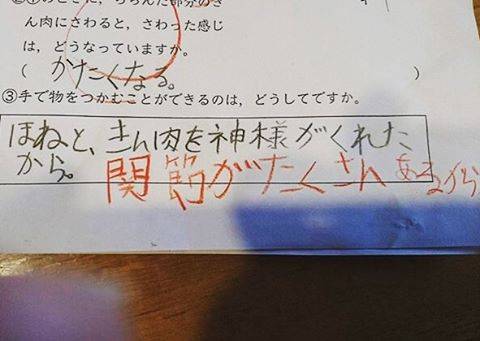 ん肉にさわると，さわった感じ
は，どうなっていますか。
（ かたくなる。 ）
③手で物をつかむことができるのは，どうしてですか。
ほねと、きん肉を神様がくれた
から。
関節がたくさんあるから